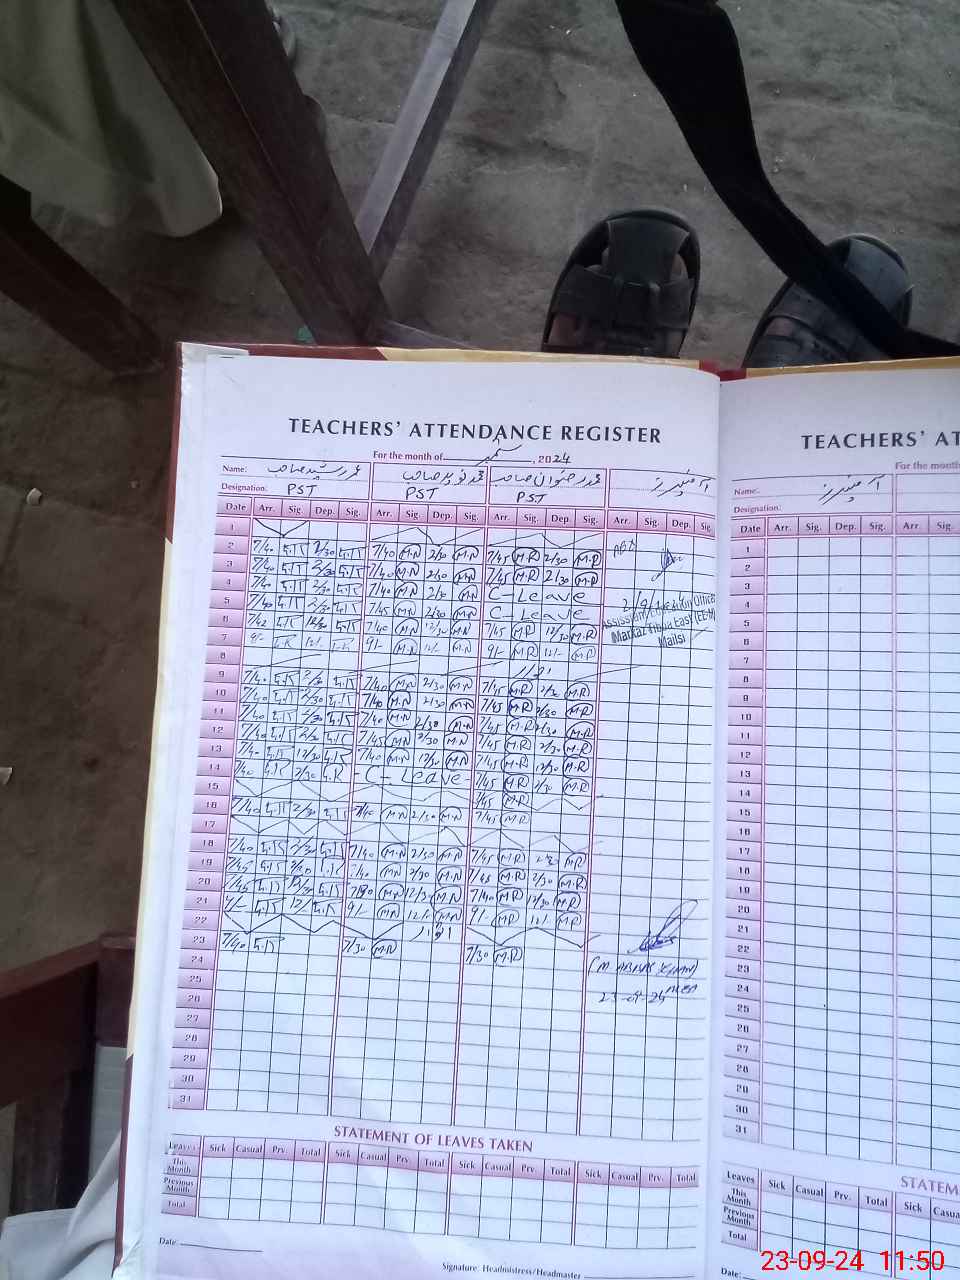 TEACHERS' ATTENDANCE REGISTER
For the month of ستمبر, 2024
Name:
Designation: PST PST PST
Date Arr. Sig. Dep. Sig. Arr. Sig. Dep. Sig. Arr. Sig. Dep. Sig. Arr. Sig. Dep. Sig.
1
2 7/40 2/30 7/40 M.N 2/30 M.N 7/45 M.R 2/30 M.R
3 7/40 2/30 7/40 M.N 2/30 M.N 7/45 M.R 2/30 M.R
4 7/40 2/30 7/40 M.N 2/30 M.N C-Leave
5 7/40 2/30 7/45 M.N 2/30 M.N C-Leave
6 7/42 12/30 7/40 M.N 12/30 M.N 7/45 M.R 12/30 M.R
7 9/- 12/- 9/- M.N 12/- M.N 9/- M.R 12/- M.R
Assistant Education Officer
Markaz Tibba East (EE-M)
Mailsi
8 اتوار
9 7/40 2/30 7/40 M.N 2/30 M.N 7/45 M.R 2/30 M.R
10 7/40 2/30 7/40 M.N 2/30 M.N 7/45 M.R 2/30 M.R
11 7/40 2/30 7/40 M.N 2/30 M.N 7/45 M.R 2/30 M.R
12 7/40 2/30 7/45 M.N 2/30 M.N 7/45 M.R 2/30 M.R
13 7/40 12/30 7/40 M.N 12/30 M.N 7/45 M.R 12/30 M.R
14 7/40 2/30 -C-Leave- 7/45 M.R 2/30 M.R
15 7/45 M.R
16 7/40 2/30 7/40 M.N 2/30 M.N 7/45 M.R
17
18 7/40 2/30 7/40 M.N 2/30 M.N 7/45 M.R 2/30 M.R
19 7/45 2/30 7/40 M.N 2/30 M.N 7/45 M.R 2/30 M.R
20 7/45 7/30 M.N 12/30 M.N 7/40 M.R 12/30 M.R
21 9/- 12/- 9/- M.N 12/- M.N 9/- M.R 12/- M.R
22 اتوار
23 7/40 7/30 M.N 7/30 M.R
24
25
23-09-24 MEA
26
27
28
29
30
31
STATEMENT OF LEAVES TAKEN
Leaves Sick Casual Prv. Total Sick Casual Prv. Total Sick Casual Prv. Total Sick Casual Prv. Total
This Month
Previous Month
Total
Date:
Signature: Headmistress/Headmaster
TEACHERS' AT
For the month
Name:
Designation:
Date Arr. Sig. Dep. Sig. Arr. Sig.
1
2
3
4
5
6
7
8
9
10
11
12
13
14
15
16
17
18
19
20
21
22
23
24
25
26
27
28
29
30
31
STATEM
Leaves Sick Casual Prv. Total Sick Casua
This Month
Previous Month
Total
Date:
23-09-24 11:50